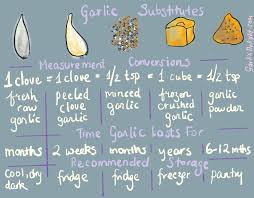 Garlic Substitutes
Measurement Conversions
1 clove = 1 clove = 1/2 tsp = 1 cube = 1/2 tsp
fresh raw garlic
peeled clove garlic
minced garlic
frozen crushed garlic
garlic powder
Time Garlic Lasts For
months 2 weeks months years 6-12 mths
Recommended Storage
cool, dry dark fridge fridge freezer pantry